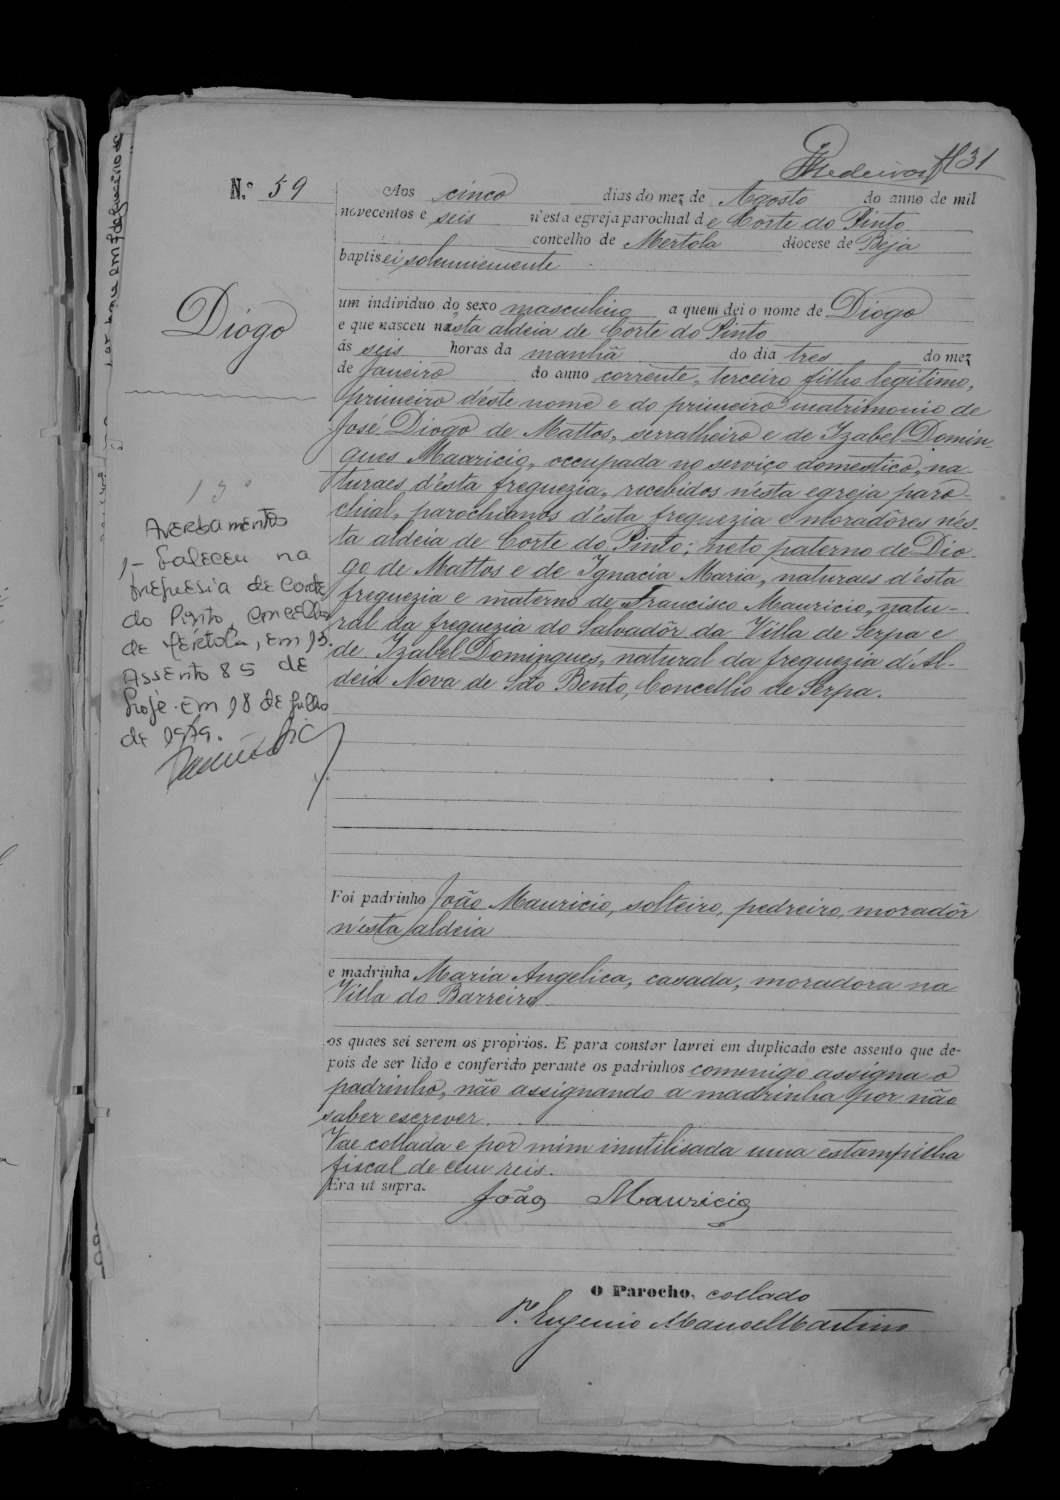 Medeiros fl 31
N.º 59
Aos cinco dias do mez de Agosto do anno de mil
novecentos e seis n'esta egreja parochial de Corte do Pinto
concelho de Mertola diocese de Beja
baptisei solemnemente
Diogo
um individuo do sexo masculino a quem dei o nome de Diogo
e que nasceu nesta aldeia de Corte do Pinto
ás seis horas da manhã do dia tres do mez
de Janeiro do anno corrente, terceiro filho legitimo,
primeiro d'éste nome e do primeiro matrimonio de
José Diogo de Mattos, serralheiro e de Izabel Domin-
gues Mauricio, occupada no serviço domestico, na-
turaes d'ésta freguezia, recebidos n'ésta egreja paro-
chial, parochianos d'ésta freguezia e moradôres n'és-
ta aldeia de Corte do Pinto; neto paterno de Dio-
go de Mattos e de Ignacia Maria, naturaes d'ésta
freguezia e materno de Francisco Mauricio, natu-
ral da freguezia do Salvadôr da Villa de Serpa e
de Izabel Domingues, natural da freguezia d'Al-
deia Nova de São Bento, Concelho de Serpa.
Averbamentos
1,- Faleceu na
freguesia de Corte
do Pinto, concelho
de Mértola, em 13.
Assento 85 de
hoje. Em 18 de Julho
de 1979.
Foi padrinho João Mauricio, solteiro, pedreiro, moradôr
n'ésta aldeia
e madrinha Maria Angelica, casada, moradora na
Villa do Barreiro
os quaes sei serem os proprios. E para constar lavrei em duplicado este assento que de-
pois de ser lido e conferido perante os padrinhos comemigo assigna o
padrinho, não assignando a madrinha por não
saber escrever.
Vae collada e por mim inutilisada uma estampilha
fiscal de cem reis.
Era ut supra.
João Mauricio
O Parocho, collado
P.e Eugenio Manoel Martins